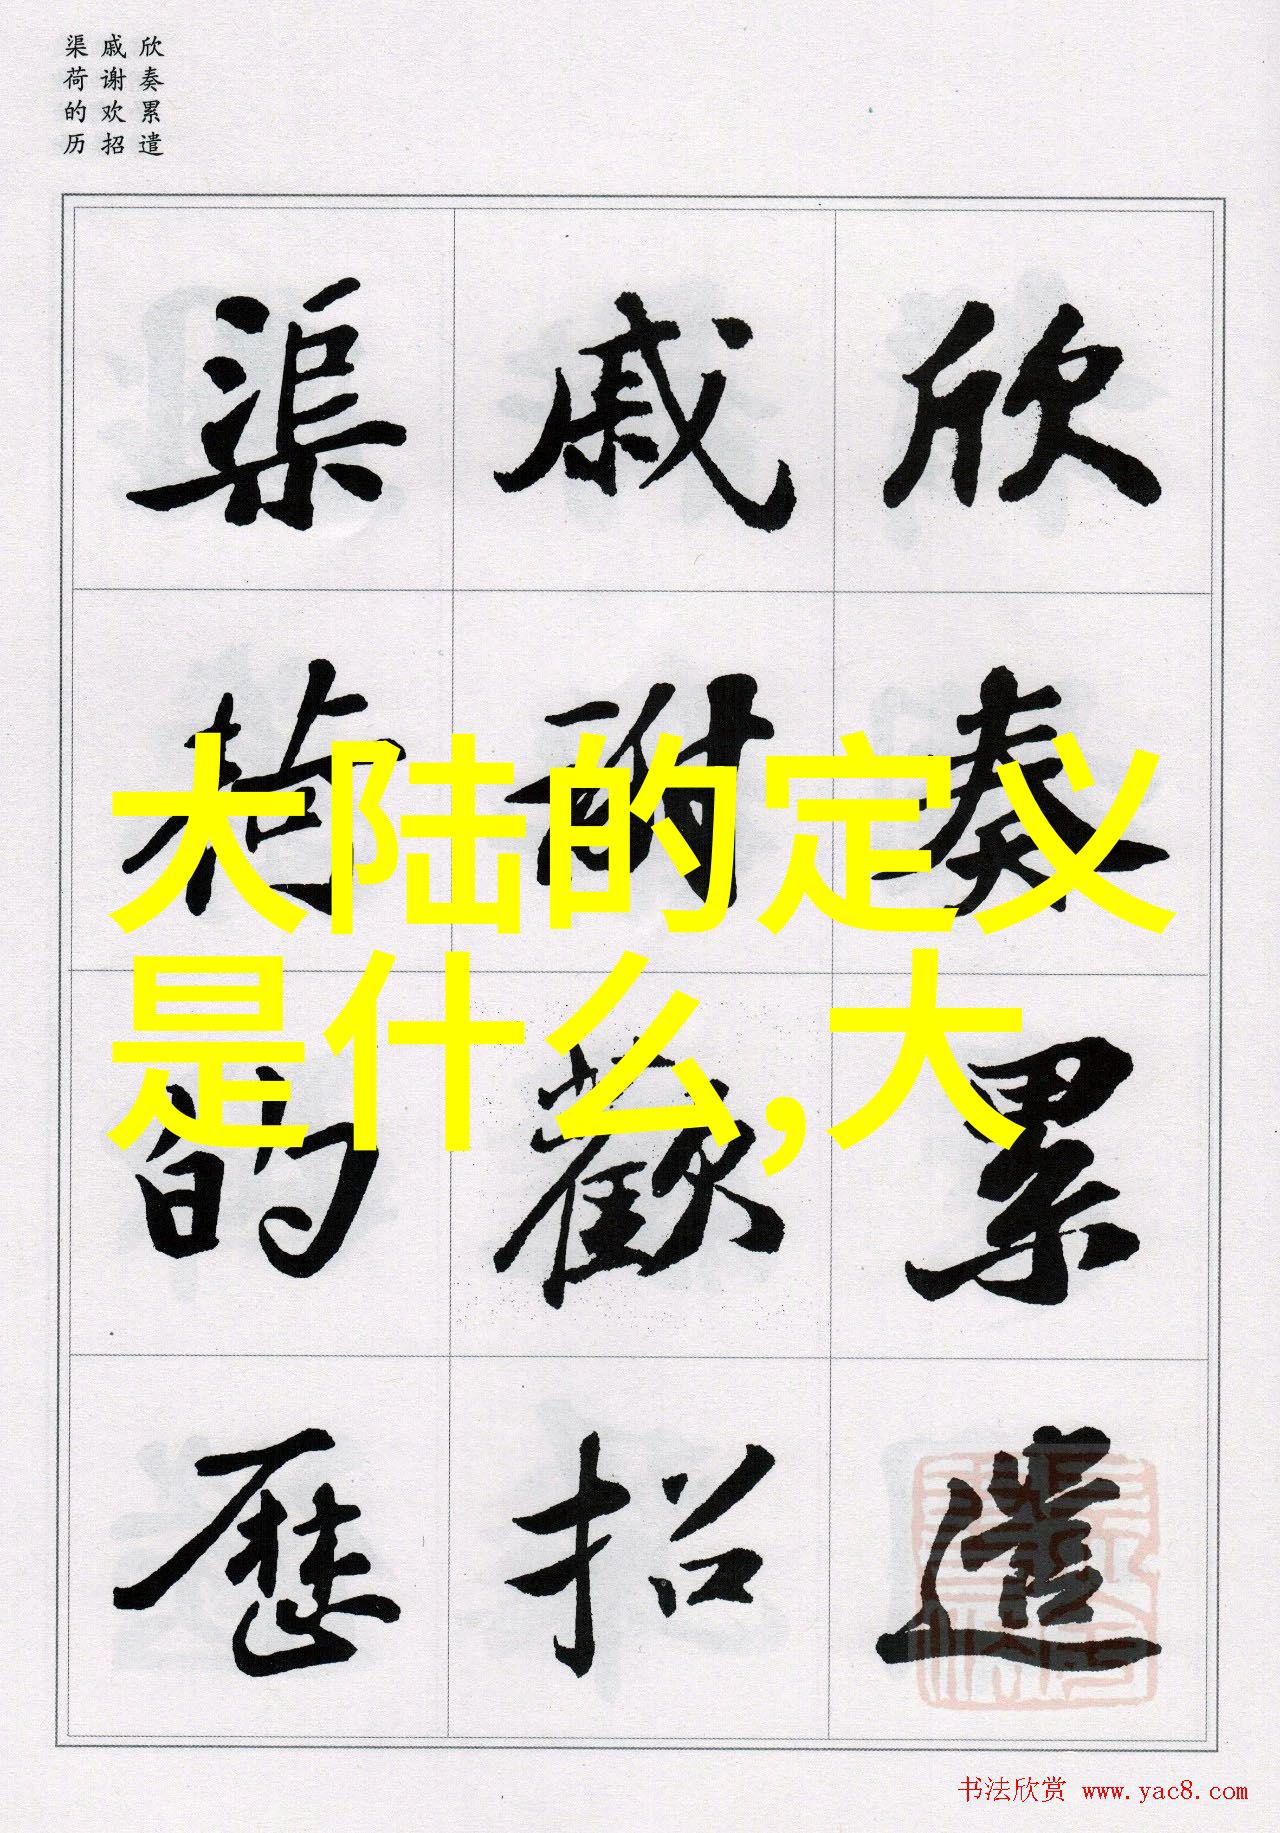 欣奏累遣
戚谢欢招
渠荷的历
欣奏累遣
戚謝歡招
渠荷的歷
大陆的定义
是什么,大
书法欣赏 www.yac8.com